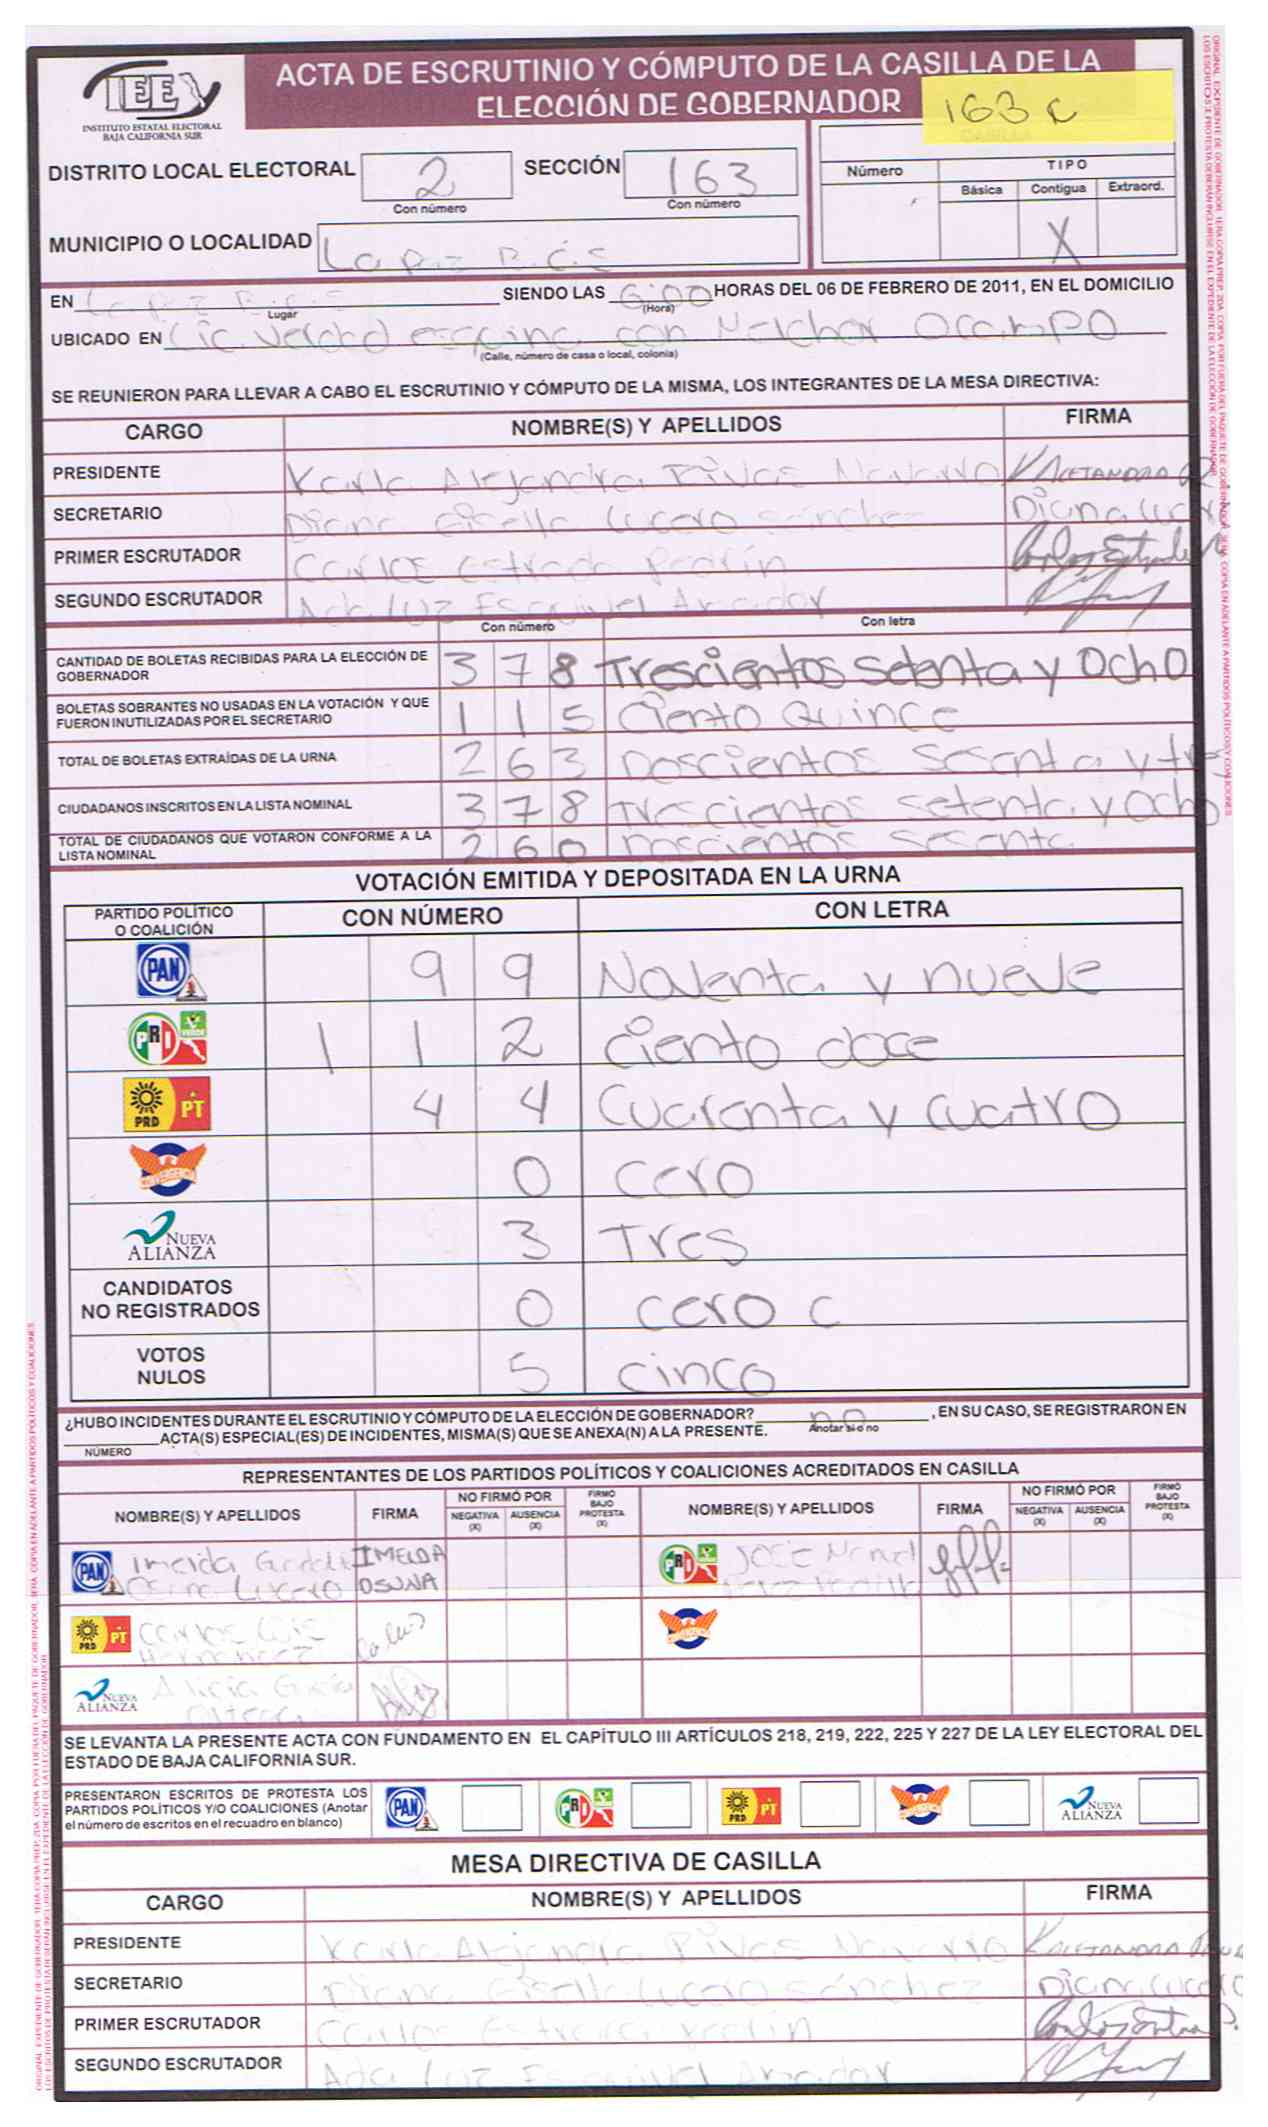 IEE
INSTITUTO ESTATAL ELECTORAL
BAJA CALIFORNIA SUR
ACTA DE ESCRUTINIO Y CÓMPUTO DE LA CASILLA DE LA
ELECCIÓN DE GOBERNADOR
163 C
DISTRITO LOCAL ELECTORAL 2 SECCIÓN 163
Con número Con número
Número TIPO
Básica Contigua Extraord.
X
MUNICIPIO O LOCALIDAD La Paz B.C.S
EN La Paz B.C.S SIENDO LAS 6:00 HORAS DEL 06 DE FEBRERO DE 2011, EN EL DOMICILIO
Lugar (Hora)
UBICADO EN Lic. Verdad esquina con Melchor Ocampo
(Calle, número de casa o local, colonia)
SE REUNIERON PARA LLEVAR A CABO EL ESCRUTINIO Y CÓMPUTO DE LA MISMA, LOS INTEGRANTES DE LA MESA DIRECTIVA:
CARGO NOMBRE(S) Y APELLIDOS FIRMA
PRESIDENTE Karla Alejandra Rivas Navarro K ALEJANDRA
SECRETARIO Diana Gisella Lucero Sánchez Diana Lucero
PRIMER ESCRUTADOR Carlos Estrada Pedrín
SEGUNDO ESCRUTADOR Ada Luz Esquivel Amador
Con número Con letra
CANTIDAD DE BOLETAS RECIBIDAS PARA LA ELECCIÓN DE
GOBERNADOR 3 7 8 Trescientos setenta y Ocho
BOLETAS SOBRANTES NO USADAS EN LA VOTACIÓN Y QUE
FUERON INUTILIZADAS POR EL SECRETARIO 1 1 5 Ciento Quince
TOTAL DE BOLETAS EXTRAÍDAS DE LA URNA 2 6 3 Doscientos sesenta y tres
CIUDADANOS INSCRITOS EN LA LISTA NOMINAL 3 7 8 Trescientos setenta y Ocho
TOTAL DE CIUDADANOS QUE VOTARON CONFORME A LA
LISTA NOMINAL 2 6 0 Doscientos sesenta
VOTACIÓN EMITIDA Y DEPOSITADA EN LA URNA
PARTIDO POLÍTICO
O COALICIÓN CON NÚMERO CON LETRA
PAN 9 9 Noventa y nueve
PRI VERDE 1 1 2 Ciento doce
PRD PT 4 4 Cuarenta y cuatro
CONVERGENCIA 0 cero
NUEVA
ALIANZA 3 Tres
CANDIDATOS
NO REGISTRADOS 0 cero c
VOTOS
NULOS 5 cinco
¿HUBO INCIDENTES DURANTE EL ESCRUTINIO Y CÓMPUTO DE LA ELECCIÓN DE GOBERNADOR? no , EN SU CASO, SE REGISTRARON EN
Anotar si o no
ACTA(S) ESPECIAL(ES) DE INCIDENTES, MISMA(S) QUE SE ANEXA(N) A LA PRESENTE.
NÚMERO
REPRESENTANTES DE LOS PARTIDOS POLÍTICOS Y COALICIONES ACREDITADOS EN CASILLA
NOMBRE(S) Y APELLIDOS FIRMA NO FIRMÓ POR FIRMÓ BAJO PROTESTA (X) NOMBRE(S) Y APELLIDOS FIRMA NO FIRMÓ POR FIRMÓ BAJO PROTESTA (X)
NEGATIVA (X) AUSENCIA (X) NEGATIVA (X) AUSENCIA (X)
PAN Imelda IMELDA PRI José
Osuna Lucero OSUNA
PRD PT Carlos Luis CONVERGENCIA
Hernandez
NUEVA ALIANZA Alicia
SE LEVANTA LA PRESENTE ACTA CON FUNDAMENTO EN EL CAPÍTULO III ARTÍCULOS 218, 219, 222, 225 Y 227 DE LA LEY ELECTORAL DEL
ESTADO DE BAJA CALIFORNIA SUR.
PRESENTARON ESCRITOS DE PROTESTA LOS
PARTIDOS POLÍTICOS Y/O COALICIONES (Anotar
el número de escritos en el recuadro en blanco) PAN PRI PRD PT CONVERGENCIA NUEVA ALIANZA
MESA DIRECTIVA DE CASILLA
CARGO NOMBRE(S) Y APELLIDOS FIRMA
PRESIDENTE Karla Alejandra Rivas Navarro K ALEJANDRA
SECRETARIO Diana Gisella Lucero Sánchez Diana Lucero
PRIMER ESCRUTADOR Carlos Estrada Pedrín
SEGUNDO ESCRUTADOR Ada Luz Esquivel Amador